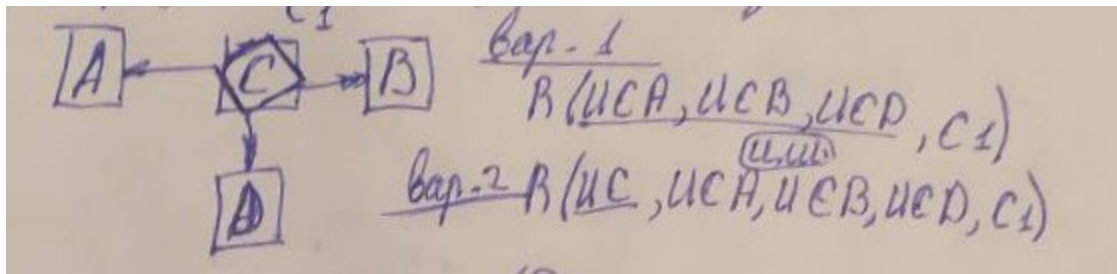 C1
A C B
вар. 1
R(ИСА, ИСВ, ИСD, С1)
вар. 2 R(ИС, ИСА, ИСВ, ИСD, С1)
D